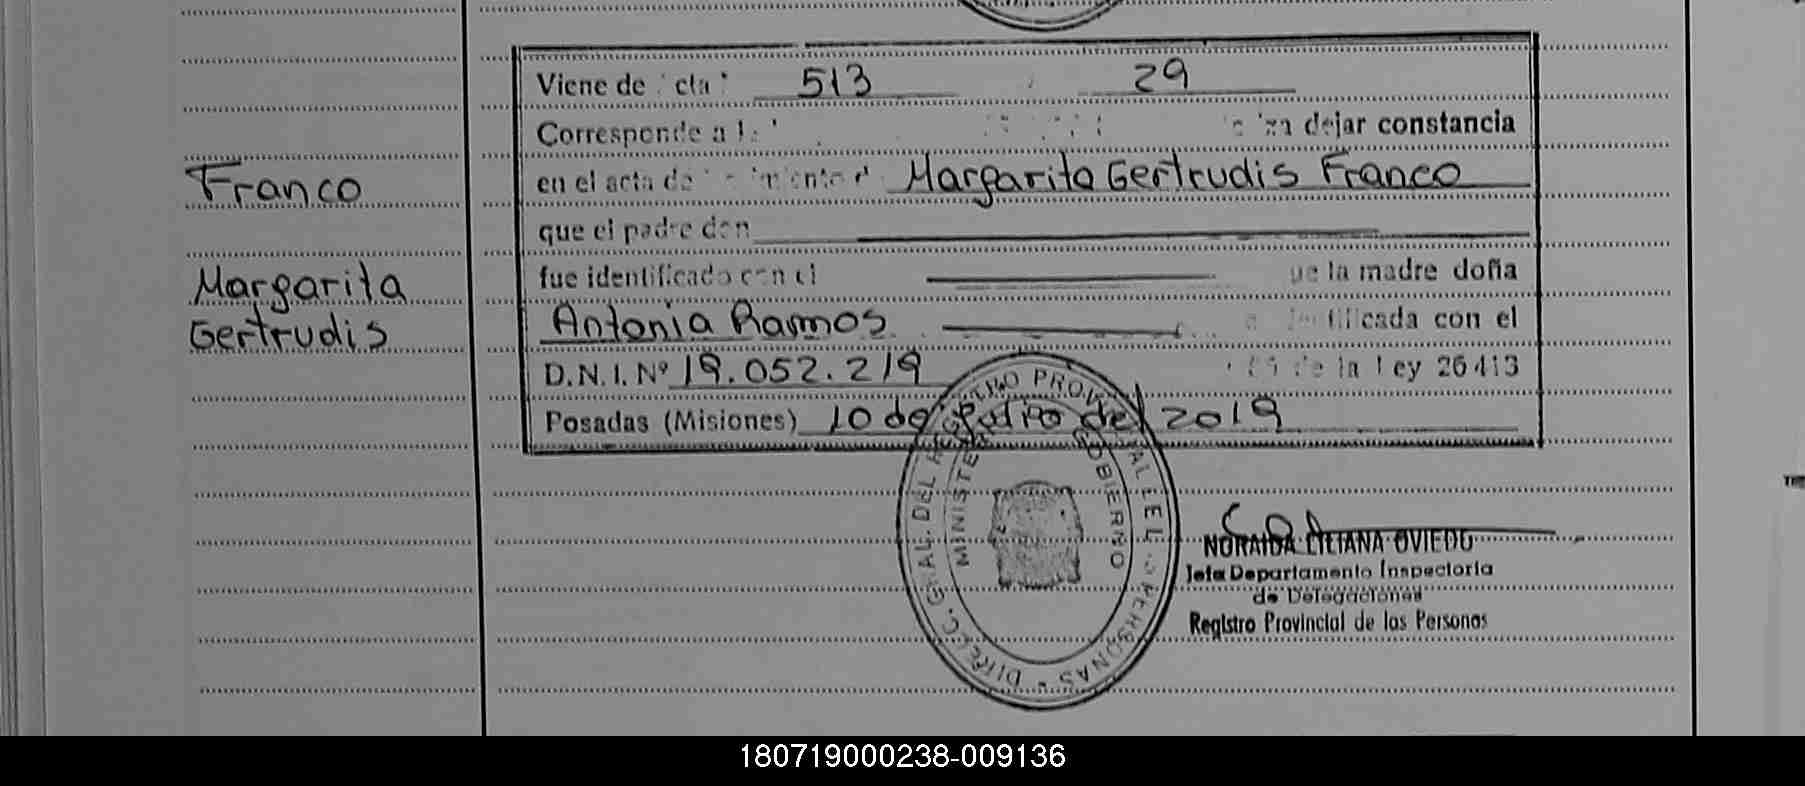 Franco
Margarita
Gertrudis
Viene de cta 513 29
Corresponde a dejar constancia
en el acta de Margarita Gertrudis Franco
que el padre don
fue identificado con el la madre doña
Antonia Ramos cada con el
D.N.I. Nº 19.052.219 de la Ley 26413
Posadas (Misiones) 10 de Julio del 2019
DIREC. GRAL. DEL REGISTRO PROVINCIAL DE PERSONAS
MINISTE GOBIERNO
NORAIDA LILIANA OVIEDO
Jefa Departamento Inspectoria
de Delegaciones
Registro Provincial de las Personas
180719000238-009136